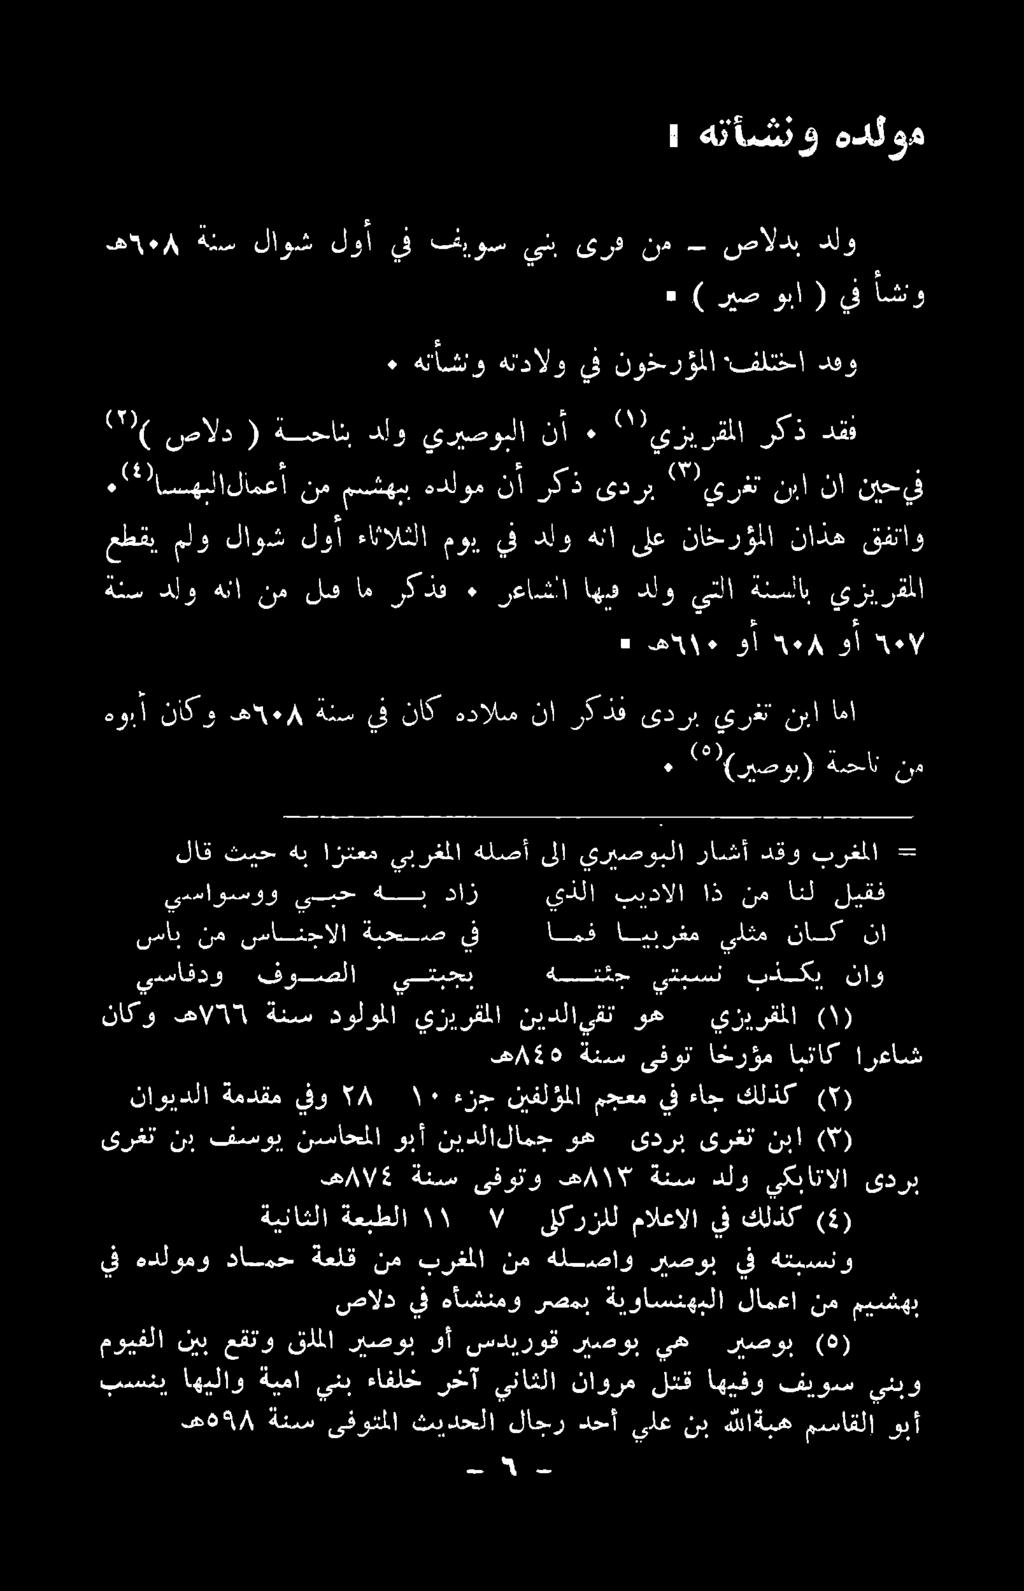 مولده ونشأته :
ولد بدلاص – من قرى بني سويف في أول شوال سنة ٦٠٨هـ
ونشأ في ( ابو صير ) .
وقد اختلف المؤرخون في ولادته ونشأته .
فقد ذكر المقريزي(١) . أن البوصيري ولد بناحية ( دلاص )(٢)
في حين ان ابن تغري(٣) بردى ذكر أن مولده ببهشيم من أعمال البهسا(٤).
واتفق هذان المؤرخان على انه ولد في يوم الثلاثاء أول شوال ولم يقطع
المقريزي بالسنة التي ولد فيها الشاعر . فذكر ما قبل من انه ولد سنة
٦٠٧ أو ٦٠٨ أو ٦١٠هـ .
اما ابن تغري بردى فذكر ان ميلاده كان في سنة ٦٠٨هـ وكان أبوه
من ناحية (بوصير)(٥) .
= المغرب وقد أشار البوصيري الى أصله المغربي معتزا به حيث قال
فقيل لنا من ذا الاديب الذي زاد به حبي ووسواسي
ان كان مثلي مغربيا فما في صحبة الاجناس من باس
وان يكذب نسبتي جئته بجبتي الصوف ودفاسي
(١) المقريزي هو تقي الدين المقريزي المولود سنة ٧٦٦هـ وكان
شاعرا كاتبا مؤرخا توفى سنة ٨٤٥هـ
(٢) كذلك جاء في معجم المؤلفين جزء ١٠ ٢٨ وفي مقدمة الديوان
(٣) ابن تغرى بردى هو جمال الدين أبو المحاسن يوسف بن تغرى
بردى الاتابكي ولد سنة ٨١٣هـ وتوفى سنة ٨٧٤هـ
(٤) كذلك في الاعلام للزركلى ٧ ١١ الطبعة الثانية
ونسبته في بوصير واصله من المغرب من قلعة حماد ومولده في
بهشيم من اعمال البهنساوية بمصر ومنشأه في دلاص
(٥) بوصير هي بوصير قوريدس أو بوصير الملق وتقع بين الفيوم
وبني سويف وفيها قتل مروان الثاني آخر خلفاء بني امية واليها ينسب
أبو القاسم هبة الله بن علي أحد رجال الحديث المتوفى سنة ٥٩٨هـ
– ٦ –